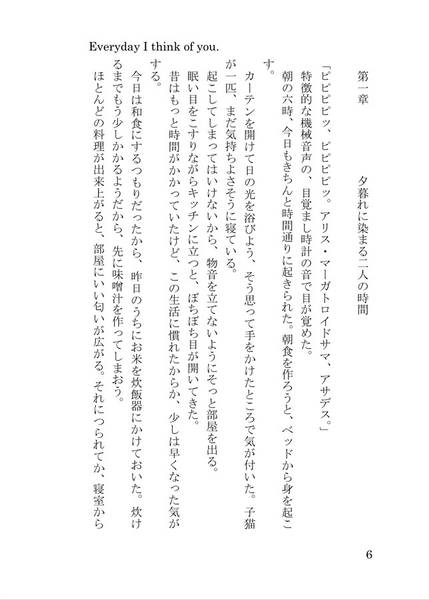 Everyday I think of you.
第一章　夕暮れに染まる二人の時間
「ピピピピッ、ピピピピッ。アリス・マーガトロイドサマ、アサデス。」
特徴的な機械音声の、目覚まし時計の音で目が覚めた。
朝の六時、今日もきちんと時間通りに起きられた。朝食を作ろうと、ベッドから身を起こ
す。
カーテンを開けて日の光を浴びよう、そう思って手をかけたところで気が付いた。子猫
が一匹、まだ気持ちよさそうに寝ている。
起こしてしまってはいけないから、物音を立てないようにそっと部屋を出る。
眠い目をこすりながらキッチンに立つと、ぼちぼち目が開いてきた。
昔はもっと時間がかかっていたけど、この生活に慣れたからか、少しは早くなった気が
する。
今日は和食にするつもりだったから、昨日のうちにお米を炊飯器にかけておいた。炊け
るまでもう少しかかるようだから、先に味噌汁を作ってしまおう。
ほとんどの料理が出来上がると、部屋にいい匂いが広がる。それにつられてか、寝室から
6